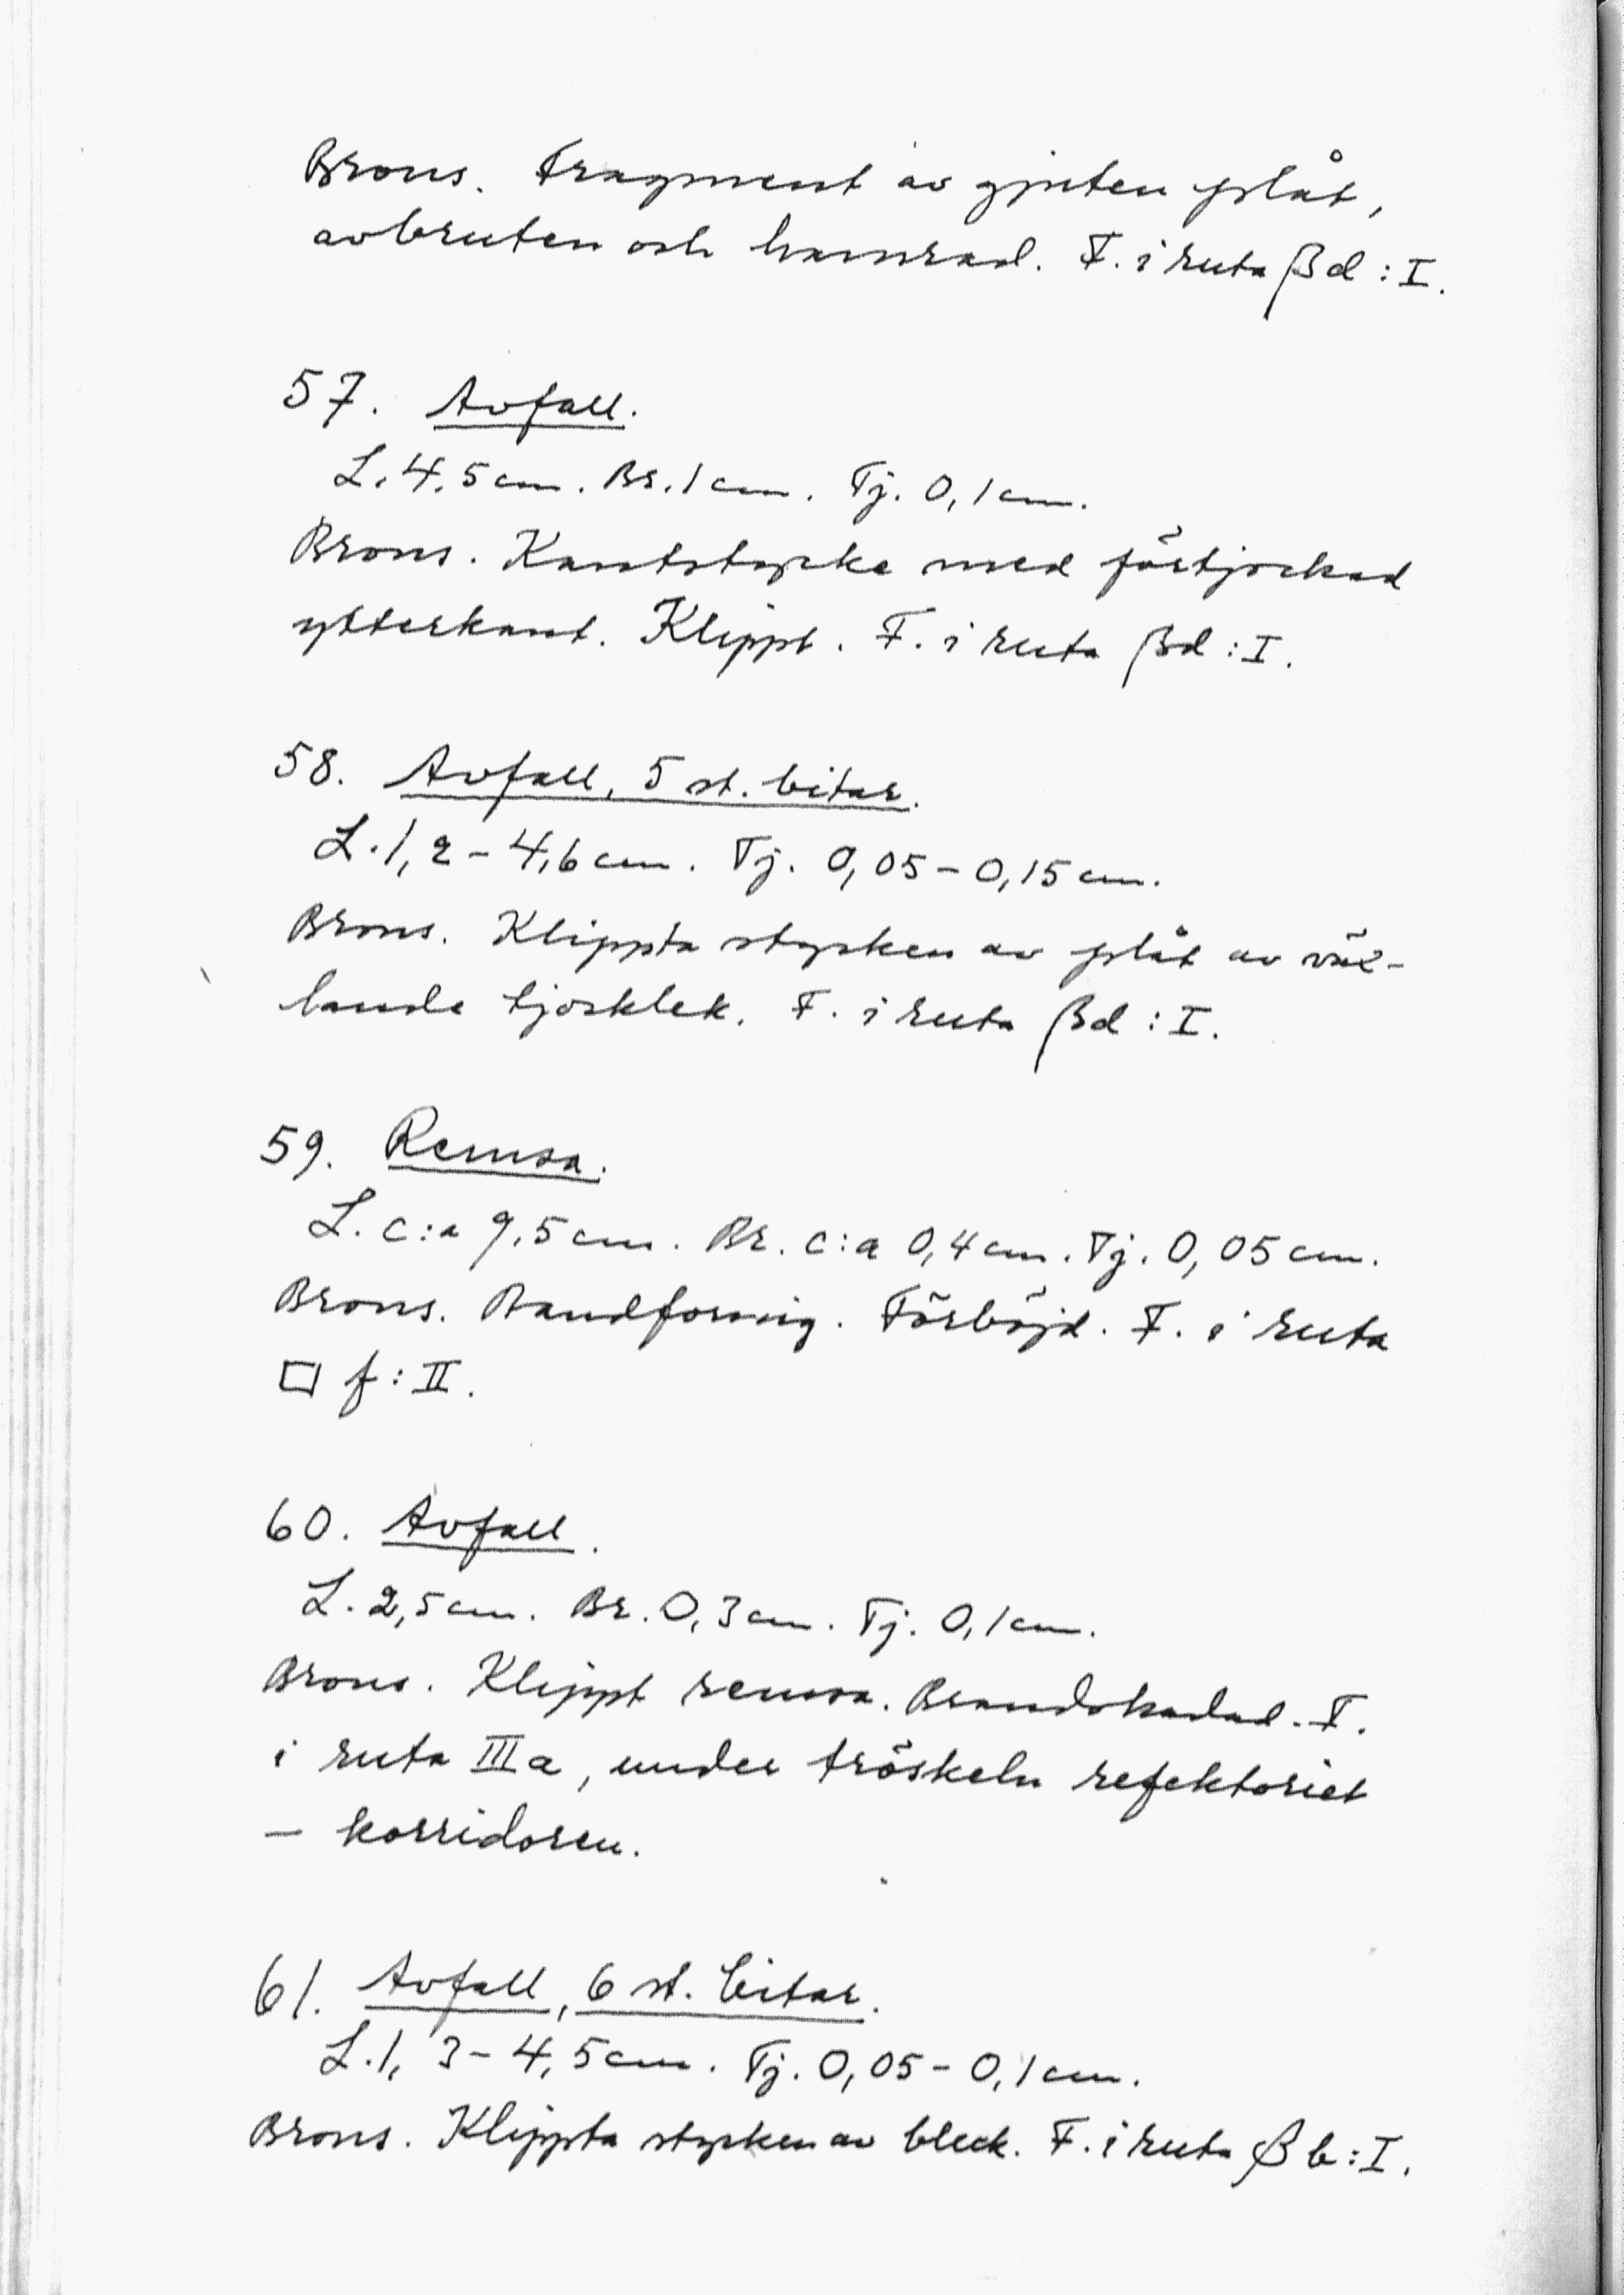 Brons. Fragment av gjuten plåt,
avbruten och hamrad. F. i ruta βd : I.
57. Avfall.
L. 4,5 cm. Br. 1 cm. Tj. 0,1 cm.
Brons. Kantstycke med förtjockad
ytterkant. Klippt. F. i ruta βd : I.
58. Avfall, 5 st. bitar.
L. 1,2 – 4,6 cm. Tj. 0,05 – 0,15 cm.
Brons. Klippta stycken av plåt av väx-
lande tjocklek. F. i ruta βd : I.
59. Remsa.
L. c:a 9,5 cm. Br. c:a 0,4 cm. Tj. 0,05 cm.
Brons. Bandformig. Förböjd. F. i ruta
□ f : II.
60. Avfall.
L. 2,5 cm. Br. 0,3 cm. Tj. 0,1 cm.
Brons. Klippt remsa. Brandskadad. F.
i ruta III a, under tröskeln refektoriet
– korridoren.
61. Avfall, 6 st. bitar.
L. 1,3 – 4,5 cm. Tj. 0,05 – 0,1 cm.
Brons. Klippta stycken av bleck. F. i ruta β b : I.